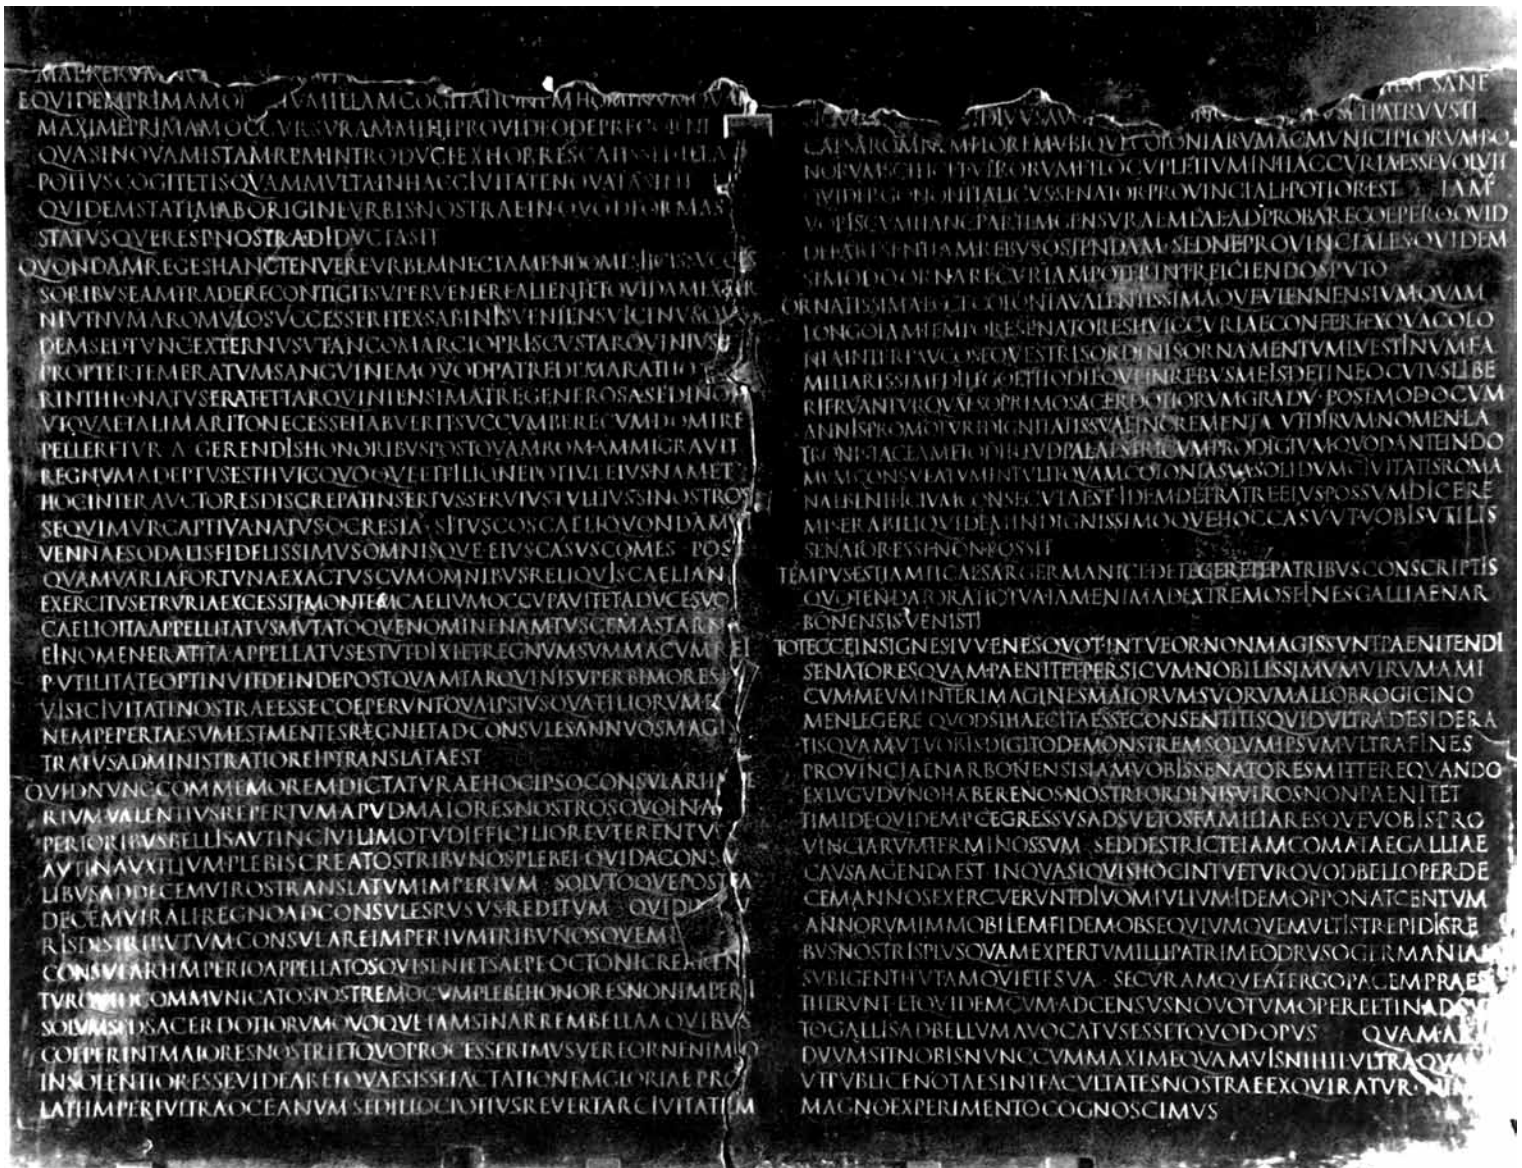 MAERERVM
EQVIDEMPRIMAMOMNIVMILLAMCOGITATIONEMHOMINVMQVAM
MAXIMEPRIMAMOCCVRSVRAMMIHIPROVIDEODEPRECORNE
QVASINOVAMISTAMREMINTRODVCIEXHORRESCATISSEDILLA
POTIVSCOGITETISQVAMMVLTAINHACCIVITATENOVATASINT
QVIDEMSTATIMABORIGINEVRBISNOSTRAEINQVODFORMAS
STATVSQVERESPNOSTRADIDVCTASIT
QVONDAMREGESHANCTENVEREVRBEMNECTAMENDOMESTICISSVCCES
SORIBVSEAMTRADERECONTIGITSVPERVENEREALIENIETQVIDAMEXTER
NIVTNVMAROMVLOSVCCESSERITEXSABINISVENIENSVICINVSQVI
DEMSEDTVNCEXTERNVSVTANCOMARCIOPRISCVSTARQVINIVS
PROPTERTEMERATVMSANGVINEMQVODPATREDEMARATHO
RINTHIONATVSERATETTARQVINIENSIMATREGENEROSASEDINOP
VTQVAETALIMARITONECESSEHABVERITSVCCVMBERECVMDOMIRE
PELLERETVR A GERENDISHONORIBVSPOSTQVAMROMAMMIGRAVIT
REGNVMADEPTVSESTHVICQVOQVEETFILIONEPOTIVEEIVSNAMET
HOCINTERAVCTORESDISCREPATINSERTVSSERVIVSTVLLIVSSINOSTROS
SEQVIMVRCAPTIVANATVSOCRESIA SITVSCOSCAELIQVONDAMVI
VENNAESODALISFIDELISSIMVSOMNISQVE EIVSCASVSCOMES POS
QVAMVARIAFORTVNAEXACTVSCVMOMNIBVSRELIQVISCAELIANI
EXERCITVSETRVRIAEXCESSITMONTEMCAELIVMOCCVPAVITETADVCESVO
CAELIOITAAPPELLITATVSMVTATOQVENOMINENAMTVSCEMASTARN
EINOMENERATITAAPPELLATVSESTVTDIXIETREGNVMSVMMACVMREI
PVTILITATEOPTINVITDEINDEPOSTQVAMTARQVINISVPERBIMORESI
VISICIVITATINOSTRAEESSECOEPERVNTQVAIPSIVSQVAFILIORVMEI
NEMPEPERTAESVMESTMENTESREGNIETADCONSVLESANNVOSMAGI
TRATVSADMINISTRATIOREIPTRANSLATAEST
QVIDNVNCCOMMEMOREMDICTATVRAEHOCIPSOCONSVLARIIM
RIVMVALENTIVSREPERTVMAPVDMAIORESNOSTROSQVOINA
PERIORIBVSBELLISAVTINCIVILIMOTVDIFFICILIOREVTERENTVR
AVTINAVXILIVMPLEBISCREATOSTRIBVNOSPLEBEIQVIDACONSV
LIBVSADDECEMVIROSTRANSLATVMIMPERIVM SOLVTOQVEPOSTEA
DECEMVIRALIREGNOADCONSVLESRVSVSREDITVM QVIDIN
RISDISTRIBVTVMCONSVLAREIMPERIVMTRIBVNOSQVEM
CONSVLARIIMPERIOAPPELLATOSQVISENIETSAEPEOCTONICREAREN
TVRQVIDCOMMVNICATOSPOSTREMOCVMPLEBEHONORESNONIMPERI
SOLVMSEDSACERDOTIORVMQVOQVEIAMSINARREMBELLAAQVIBVS
COEPERINTMAIORESNOSTRIETQVOPROCESSERIMVSVEREORNENIMIO
INSOLENTIORESSEVIDEARETQVAESISSEIACTATIONEMGLORIAEPRO
LATIIMPERIVLTRAOCEANVMSEDILLOCPOTIVSREVERTARCIVITATEM
SANE
DIVVSAVG PATRVVSTI
CAESAROMNEMFLOREMVBIQVECOLONIARVMACMVNICIPIORVMBO
NORVMSCILICETVIRORVMETLOCVPLETIVMINHACCVRIAESSEVOLVIT
QVIDERGONONITALICVSSENATORPROVINCIALIPOTIOREST IAM
VOBISCVMHANCPARTEMCENSVRAEMEAEADPROBARECOEPEROQVID
DEEARESENTIAMREBVSOSTENDAM SEDNEPROVINCIALESQVIDEM
SIMODOORNARECVRIAMPOTERINTREICIENDOSPVTO
ORNATISSIMAECCECOLONIAVALENTISSIMAQVEVIENNENSIVMQVAM
LONGOIAMTEMPORESENATORESHVICCVRIAECONFERTEXQVACOLO
NIAINTERPAVCOSEQVESTRISORDINISORNAMENTVMLVESTINVMFA
MILIARISSIMEDILIGOETHODIEQVEINREBVSMEISDETINEOCVIVSLIBE
RIFRVANTVRQVAESOPRIMOSACERDOTIORVMGRADVPOSTMODOCVM
ANNISPROMOTVRIDIGNITATISSVAEINCREMENTA VTDIRVMNOMENLA
TRONISTACEAMETODIILLVDPALAESTRICVMPRODIGIVMQVODANTEINDO
MVMCONSVLATVMINTVLITQVAMCOLONIASVASOLIDVMCIVITATISROMA
NAEBENIFICIVMCONSECVTAEST IDEMDEFRATREEIVSPOSSVMDICERE
MISERABILIQVIDEMINDIGNISSIMOQVEHOCCASVVTVOBISVTILIS
SENATORESSENONPOSSIT
TEMPVSESTIAMTICAESARGERMANICEDETEGERETEPATRIBVSCONSCRIPTIS
QVOTENDATORATIOTVAIAMENIMADEXTREMOSFINESGALLIAENAR
BONENSISVENISTI
TOTECCEINSIGNESIVVENESQVOTINTVEORNONMAGISSVNTPAENITENDI
SENATORESQVAMPAENITETPERSICVMNOBILISSIMVMVIRVMAMI
CVMMEVMINTERIMAGINESMAIORVMSVORVMALLOBROGICINO
MENLEGERE QVODSIHAECITAESSECONSENTITISQVIDVLTRADESIDERA
TISQVAMVTVOBISDIGITODEMONSTREMSOLVMIPSVMVLTRAFINES
PROVINCIAENARBONENSISIAMVOBISSENATORESMITTEREQVANDO
EXLVGVDVNOHABERENOSNOSTRIORDINISVIROSNONPAENITET
TIMIDEQVIDEMPCEGRESSVSADSVETOSFAMILIARESQVEVOBISPRO
VINCIARVMTERMINOSSVM SEDDESTRICTEIAMCOMATAEGALLIAE
CAVSAAGENDAEST INQVASIQVISHOCINTVETVRQVODBELLOPERDE
CEMANNOSEXERCVERVNTDIVOMIVLIVMIDEMOPPONATCENTVM
ANNORVMIMMOBILEMFIDEMOBSEQVIVMQVEMVLTISTREPIDISRE
BVSNOSTRISPLVSQVAMEXPERTVMILLIPATRIMEODRVSOGERMANIAM
SVBIGENTITVTAMQVIETESVA SECVRAMQVEATERGOPACEMPRAES
TITERVNTETQVIDEMCVMADCENSVSNOVOTVMOPEREETINADSVE
TOGALLISADBELLVMAVOCATVSESSETQVODOPVS QVAMAR
DVVMSITNOBISNVNCCVMMAXIMEQVAMVISNIHILVLTRAQVAM
VTPVBLICENOTAESINTFACVLTATESNOSTRAEEXQVIRATVRNIM
MAGNOEXPERIMENTOCOGNOSCIMVS